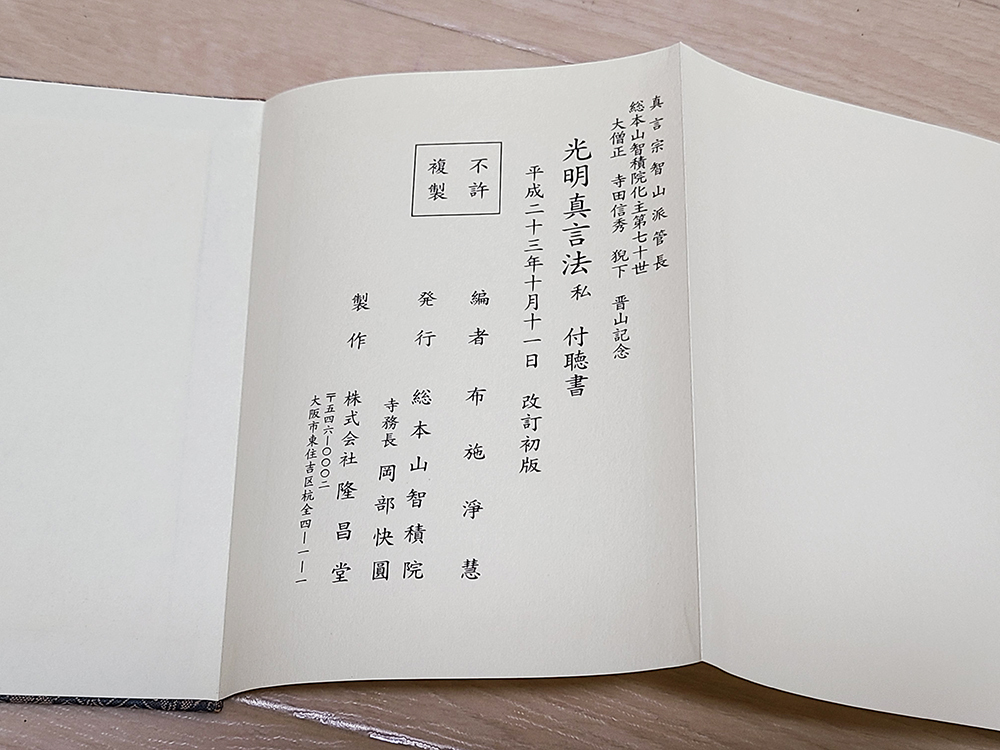 真言宗智山派管長
総本山智積院化主第七十世
大僧正 寺田信秀 猊下 晋山記念
光明真言法 私 付聴書
平成二十三年十月十一日 改訂初版
不許
複製
編者 布施淨慧
発行 総本山智積院
寺務長 岡部快圓
製作 株式会社隆昌堂
〒五四六ー〇〇〇二
大阪市東住吉区杭全四ー一ー一